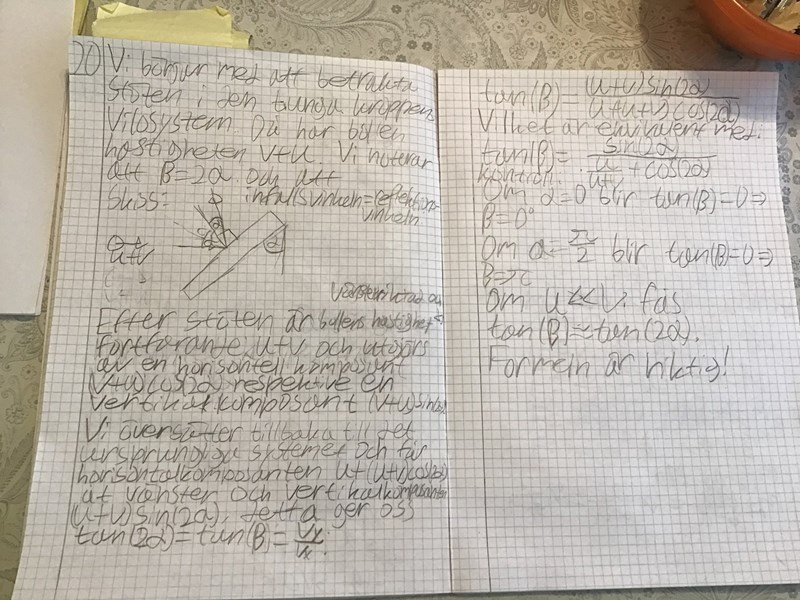 20) Vi börjar med att betrakta
stöten i den tunga kroppens
vilosystem. Då har bollen
hastigheten v+u. Vi noterar
att B=2α och att
Skiss: infallsvinkeln=reflektions-
vinkeln
u+v
α
Efter stöten är bollens hastighet
fortfarande u+v och utgörs
av en horisontell komposant
(v+u)cos(2α) respektive en
vertikal komposant (v+u)sin(2α)
Vi översätter tillbaka till det
ursprungliga systemet och får
horisontalkomposanten u+(u+v)cos(2α)
åt vänster och vertikalkomposanten
(u+v)sin(2α). Detta ger oss
tan(2α)=tan(B)=Vy/Vx:
tan(B)=(u+v)sin(2α)/u+(u+v)cos(2α)
Vilket är ekvivalent med:
tan(B)=sin(2α)/u/u+v+cos(2α)
Om α=0 blir tan(B)=0⇒
B=0°
Om α=π/2 blir tan(B)=0⇒
B=π
Om u<<v, fås
tan(B)≈tan(2α).
Formeln är riktig!